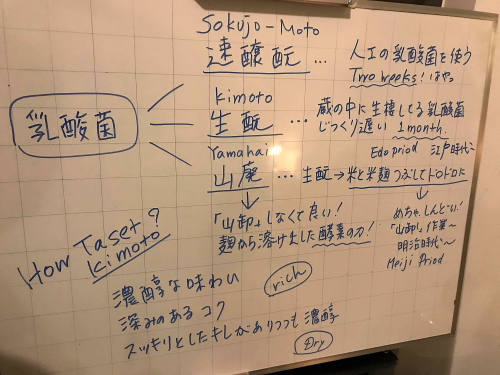 Sokujo-Moto
速醸酛 … 人工の乳酸菌を使う
Two weeks! はやっ
乳酸菌
kimoto
生酛 … 蔵の中に生棲してる乳酸菌
じっくり遅い 1month.
Edo priod 江戸時代〜
Yamahai
山廃 … 生酛→米と米麹つぶしてドロドロに
「山卸」しなくて良い!
麹から溶けました酵素の力!
めちゃ.しんどい!
「山卸」作業〜
明治時代〜
Meiji Priod
How Taset?
kimoto
濃醇な味わい
rich
深みのある コク
スッキリとしたキレがありつつも 濃醇
Dry